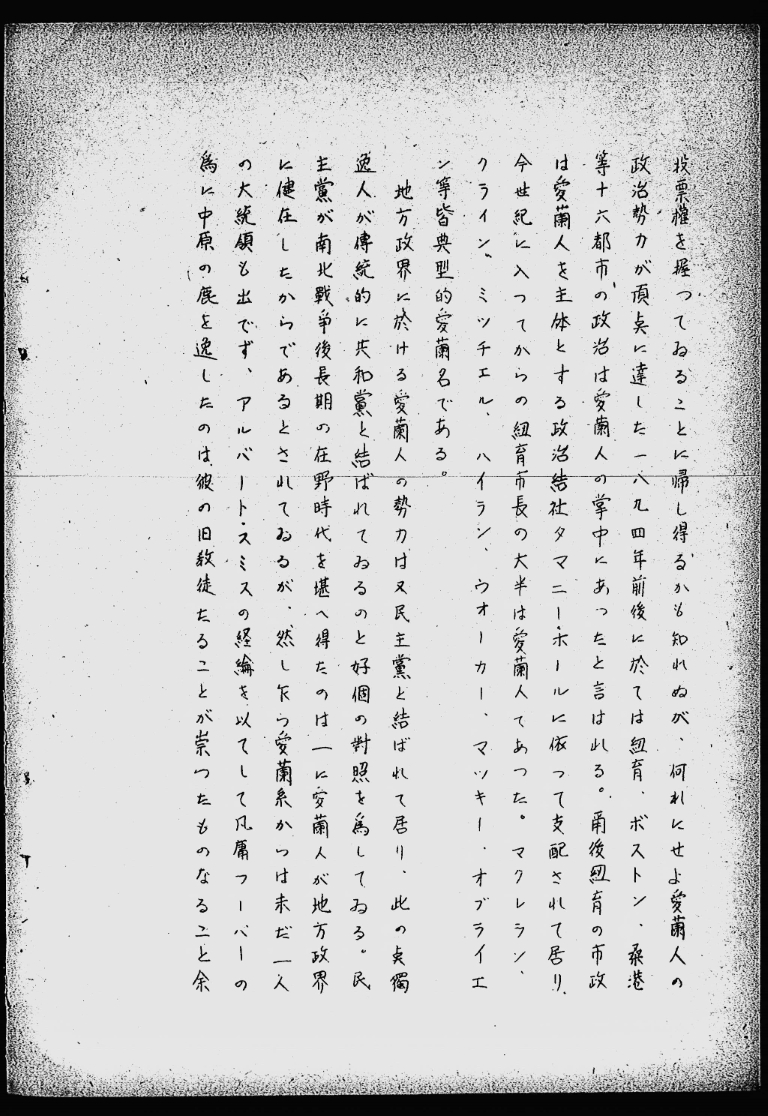 投票権を握つてゐることに帰し得るかも知れぬが、何れにせよ愛蘭人の
政治勢力が頂点に達した一八九四年前後に於ては紐育、ボストン、桑港
等十六都市の政治は愛蘭人の掌中にあつたと言はれる。爾後紐育の市政
は愛蘭人を主体とする政治結社タマニー・ホールに依つて支配されて居り、
今世紀に入つてからの紐育市長の大半は愛蘭人であつた。マクレラン、
クライン、ミツチエル、ハイラン、ウオーカー、マツキー、オブライエ
ン等皆典型的愛蘭名である。
地方政界に於ける愛蘭人の勢力は又民主黨と結ばれて居り、此の点獨
逸人が傳統的に共和黨と結ばれてゐるのと好個の對照を為してゐる。民
主黨が南北戰爭後長期の在野時代を堪へ得たのは一に愛蘭人が地方政界
に健在したからであるとされてゐるが、然し乍ら愛蘭系からは未だ一人
の大統領も出でず、アルバート・スミスの経綸を以てして凡庸フーバーの
為に中原の鹿を逸したのは彼の旧教徒たることが崇つたものなること余